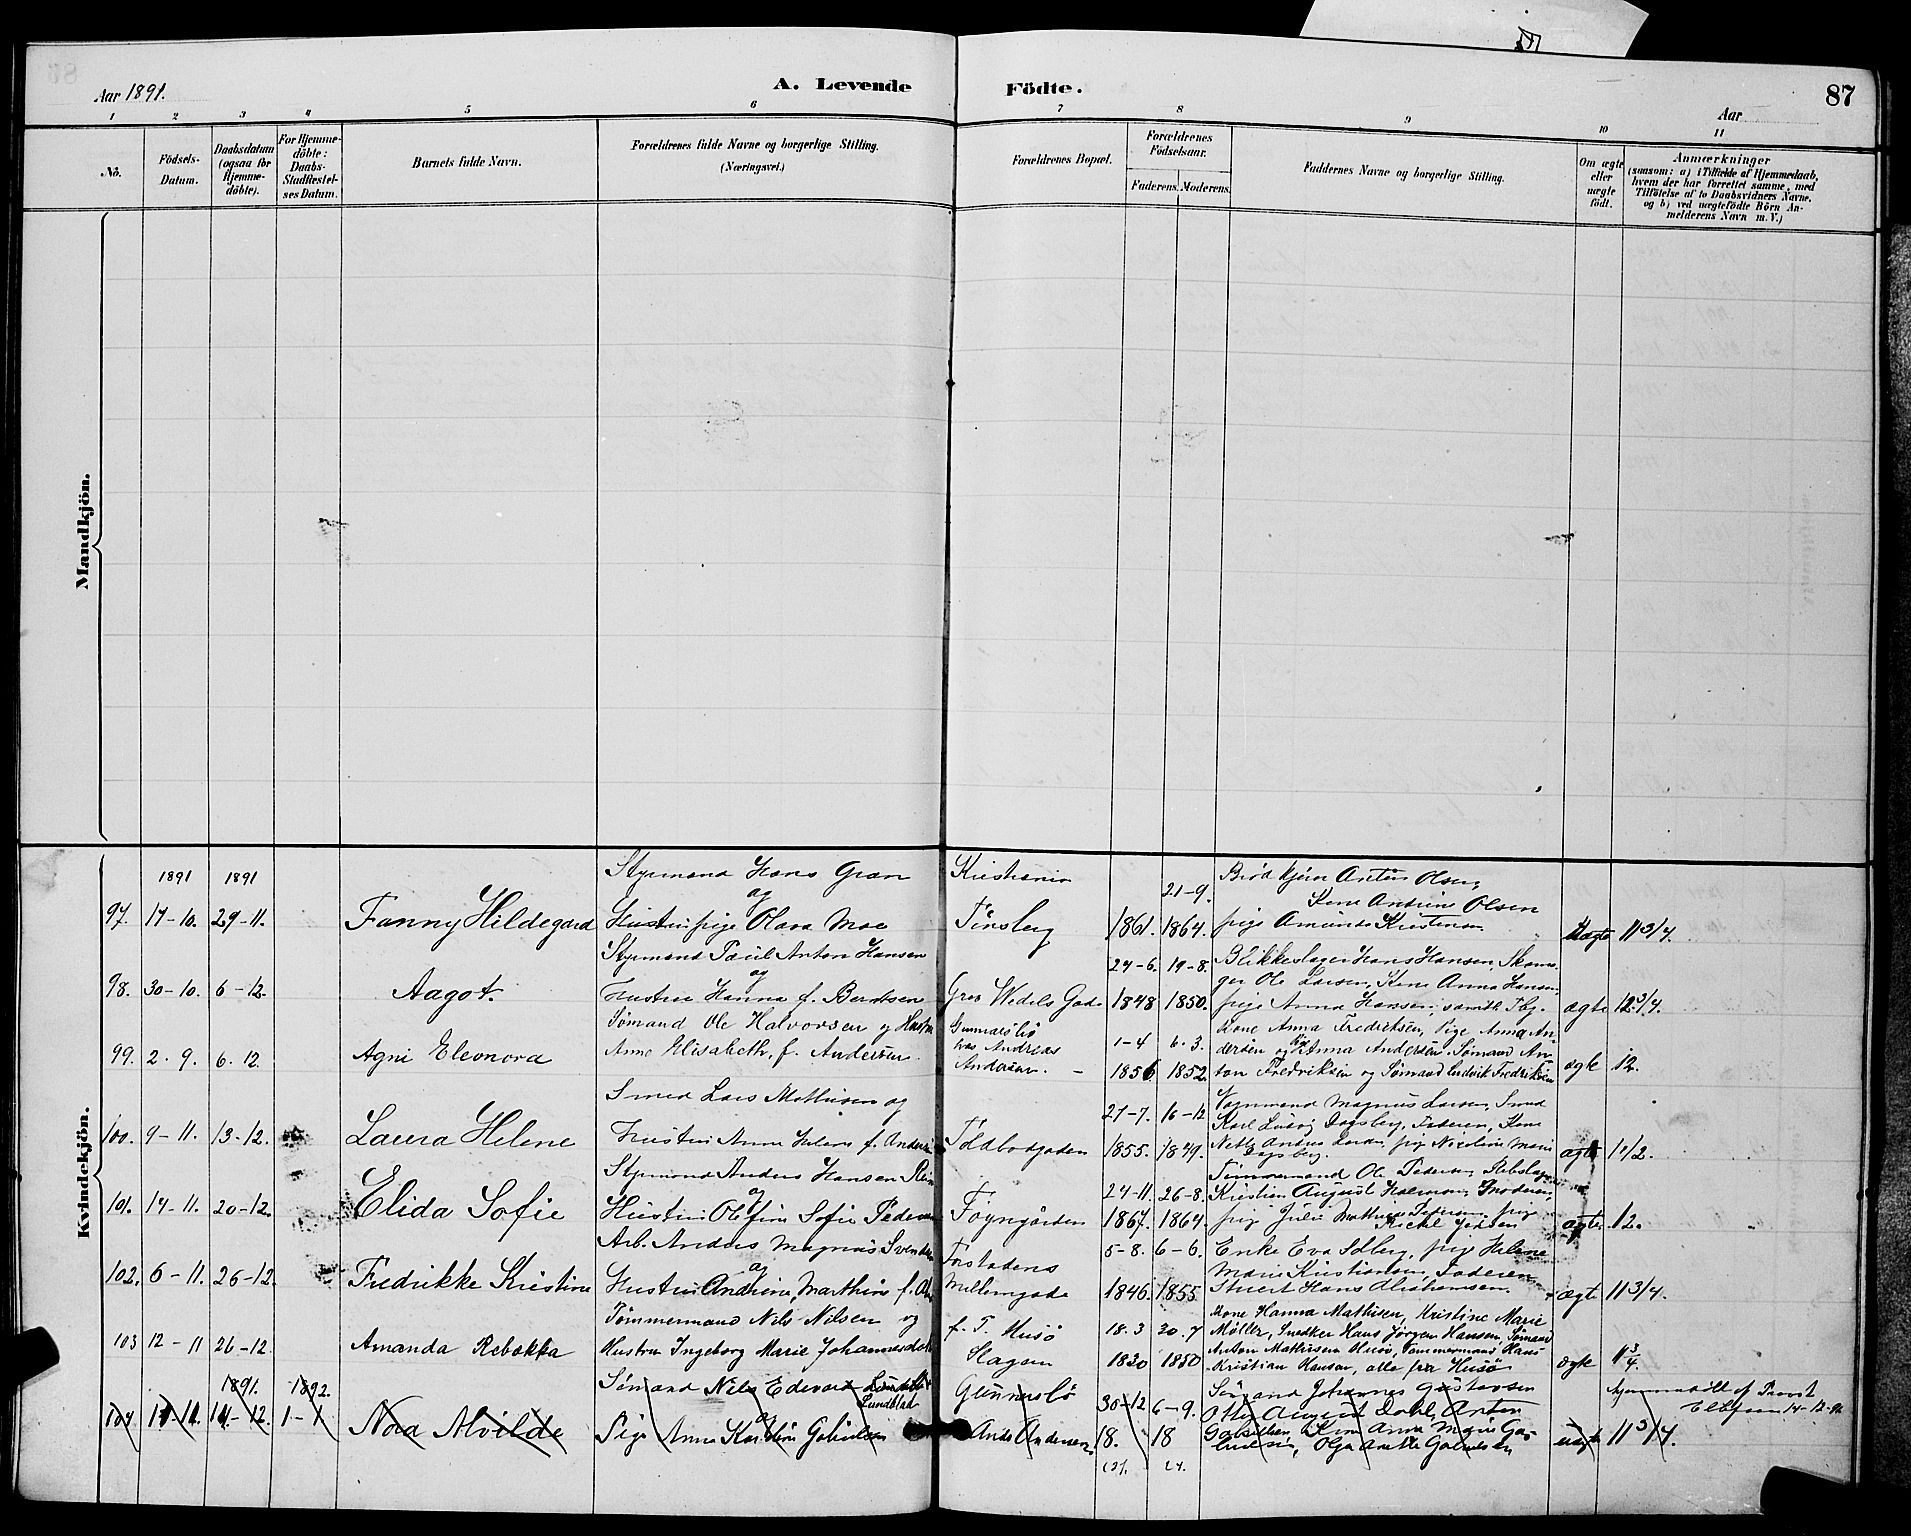 Aar 1891.
A. Levende Födte.
87
Aar
1 2 3 4 5 6 7 8 9 10 11
No.
Födsels-Datum.
Daabsdatum (ogsaa for Hjemme-döbte).
For Hjemme-döbte: Daabs-Stadfæstel-ses Datum.
Barnets fulde Navn.
Forældrenes fulde Navne og borgerlige Stilling.
(Næringsvei.)
Forældrenes Bopæl.
Forældrenes Födselsaar.
Faderens. Moderens.
Faddernes Navne og borgerlige Stilling.
Om ægte eller uægte födt.
Anmærkninger
(saasom: a) i Tilfælde af Hjemmedaab,
hvem der har forrettet samme, med
Tilföielse af to Daabsvidners Navne,
og b) ved uægtefödte Börn An-
melderens Navn m. V.)
Mandkjön.
Kvindekjön.
1891 1891
Styrmand Hans Gran
Kristiania
21-9.
Brödkjörer Anton Olsen,
og
Kone Andrine Olsen
97. 17-10. 29-11. Fanny Hildegard
pige Olava Moe
Tönsberg 1861. 1864.
pige Amunda Kristensen
Uægte 11 3/4.
Styrmand Paul Anton Hansen
24-6. 19-8.
Blikkeslager Hans Hansen, Skoma-
og
ger Ole Larsen, Kone Anna Hansen,
98. 30-10. 6-12. Aagot.
Hustru Hanna f. Berntsen
Grev Wedels Gade 1848 1850.
pige Anna Hansen, samtl. Tbg.
ægte 12 3/4.
Sömand Ole Halvorsen og Hustru
Gunnarsbö
hos Andreas
Andersen.
1-4 6.3.
Kone Anna Fredriksen, Pige Anna An-
dersen og Anna Andersen. Sömand An-
99. 2.9. 6.12. Agni Eleonora
Anne Elisabeth, f. Andersen.
1856 1852.
ton Fredriksen og Sömand Ludvik Fredriksen
ægte 12.
Smed Lars Mathisen og
27-7. 16-12
Vognmand Magnus Larsen, Smed
Karl Ludvig Dagsberg, Faderen, Kone
100. 9-11. 13-12. Laura Helene
Hustru Anne Helene f. Andersen
Toldbodgaden 1855. 1849.
ægte 12.
Styrmand Anders Hansen
24-11. 26-8.
Tömmermand Ole Pedersen, Rebslager
og
Kristian August Halvorsen, Moderen,
101. 14-11. 20-12. Elida Sofie
Hustru Olefine Sofie Pedersen
Föyngården 1867. 1864.
pige Julie Mathea Pedersen, pige
ægte 12.
Arb. Anders Magnus Svendsen
Forstadens
5-8. 6-6.
Enke Eva Solberg, pige Helene
og
Marie Kristiansen, Faderen
102. 6-11. 26-12. Fredrikke Kristine
Hustru Andrine Marthine f. Ols
Mellemgade 1846. 1855
Stuert Hans Abrahamsen.
ægte 11 3/4.
Tömmermand Nils Nilsen og
f. T. Husö
18.3 20.7
Kone Hanna Mathisen, Kristine Marie
Möller, Snedker Hans Jörgen Hansen, Sömand
103 12-11 26-12. Amanda Rebekka
Hustru Ingeborg Marie Johannesdatter
Slagen 1820 1850
Anton Mathisen Husö, Tömmermand Hans
Kristian Hansen, alle fra Husö
ægte 11 3/4.
1891. 1892.
Sömand Nils Edevard Lundblad
Gunnarsbö
30-12 6-9.
Sömand Johannes Gustavsen
Hjemmedöbt af Provst
Ellefsen 14-12-91
Otto August Dahl, Anton
104 11-11. 14-12. 1-1 Nora Alvilde
Pige Anna Karoline Gabrielsen
Ands Andersen 18. 18
Gabrielsen, Kone Anna Marie Ga-
brielsen, Olga Anette Gabrielsen
uægte 11 3/4.